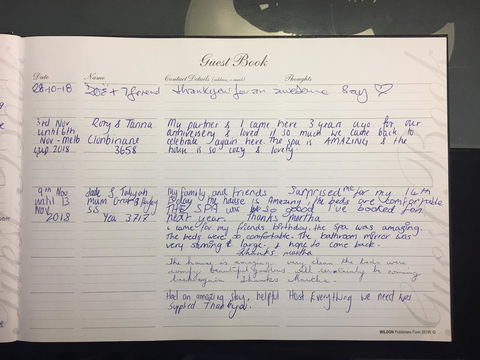 Guest Book
Date Name Contact Details (address, e-mail) Thoughts
28-10-18 Zoe + 7 friend thankyou for an awesome Bday ♡
3rd Nov Rory & Tanna My partner & I came here 3 years ago for our
until 6th anniversery & loved it so much we came back to
Nov - Melb Clonbinane celebrate again here. The spa is AMAZING & the
cup 2018 3658 house is so cosy & lovely.
9th Nov My family and friends Surprised me for my 14th
until 13 mum Bday The house is Amazing, the beds are comfortable
Nov SIS THE SPA was so good I've booked for
2018 Yea 3717 next year. Thanks martha
I came for my friends birthday, the spa was amazing.
The beds were so comfortable. The bathroom mirror was
very stunning & large. I hope to come back.
Thanks martha
The house is amazing very clean the beds were
comfy beautiful gardens will certainly be coming
back again Thankes Martha.
Had an amazing stay, helpful Host Everything we need was
supplied Thankyou.
WILDON Publishers